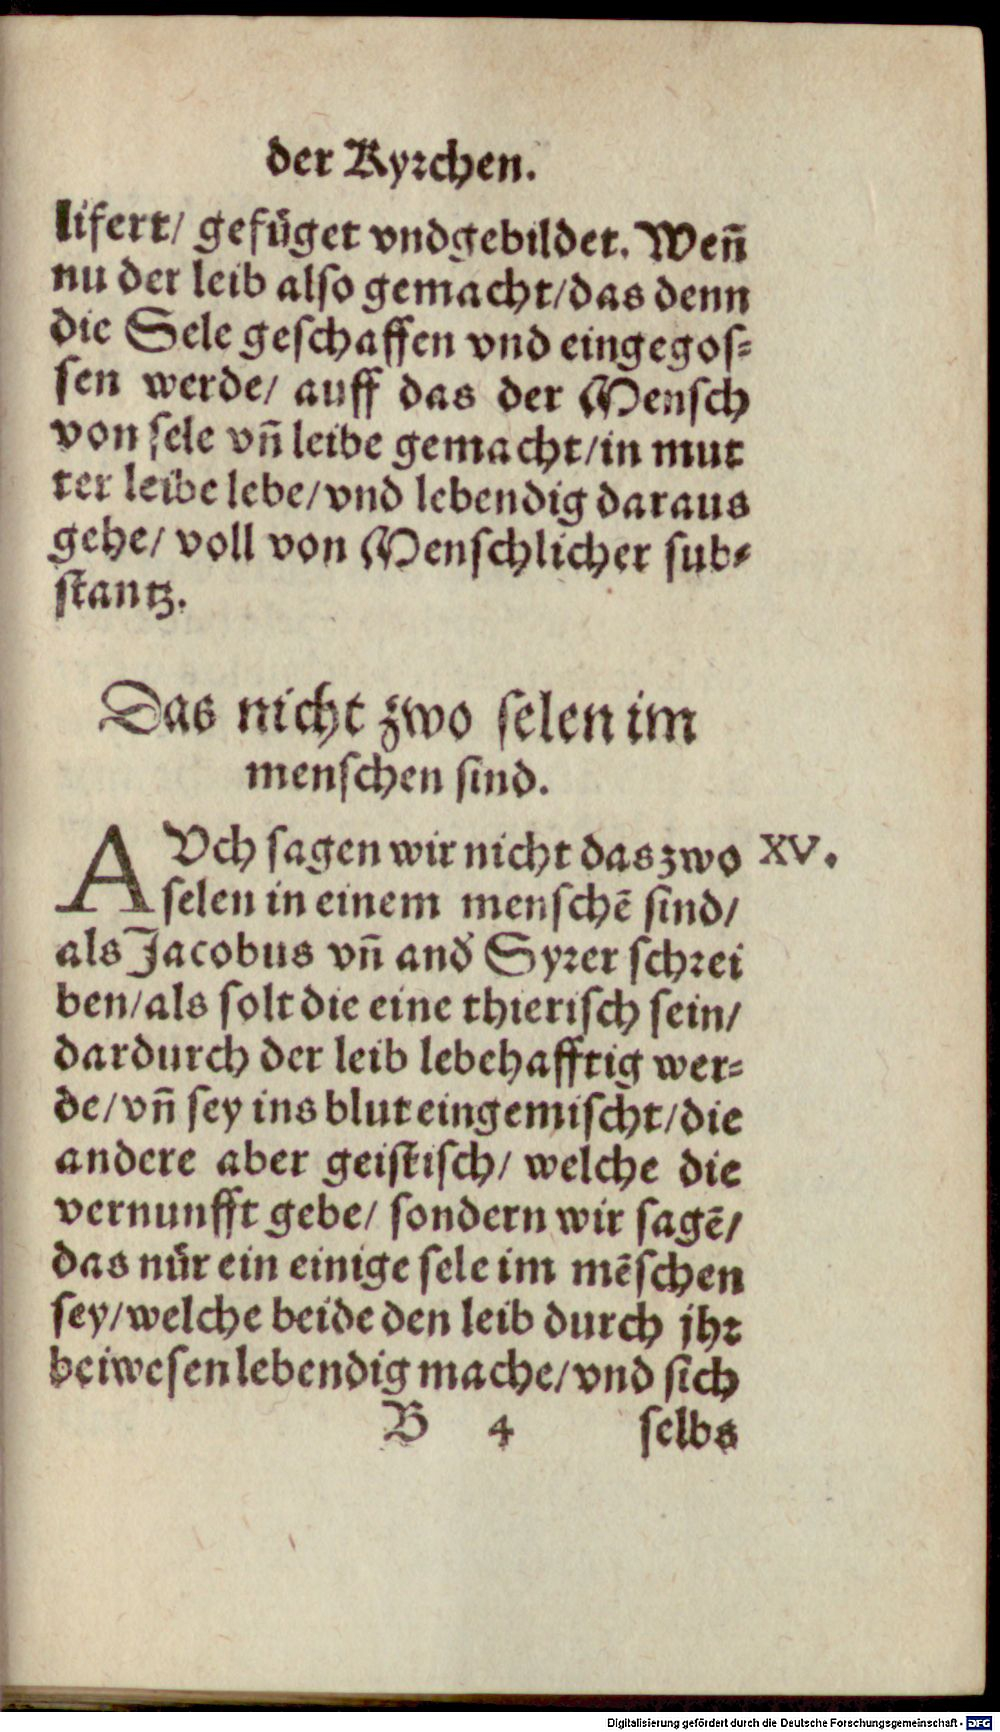 der Kyrchen.
lifert/ gefüget vndgebildet. Weñ
nu der leib also gemacht/das denn
die Sele geschaffen vnd eingegos-
sen werde/ auff das der Mensch
von sele vñ leibe gemacht/in mut
ter leibe lebe/vnd lebendig daraus
gehe/ voll von Menschlicher sub-
stantz.
Das nicht zwo selen im
menschen sind.
AVch sagen wir nicht das zwo XV.
selen in einem menschē sind/
als Jacobus vñ and̛ Syrer schrei
ben/als solt die eine thierisch sein/
dardurch der leib lebehafftig wer-
de/vñ sey ins blut eingemischt/die
andere aber geistisch/ welche die
vernunfft gebe/ sondern wir sagē/
das nür ein einige sele im mēschen
sey/welche beide den leib durch jhr
beiwesen lebendig mache/vnd sich
B 4 selbs
Digitalisierung gefördert durch die Deutsche Forschungsgemeinschaft - DFG